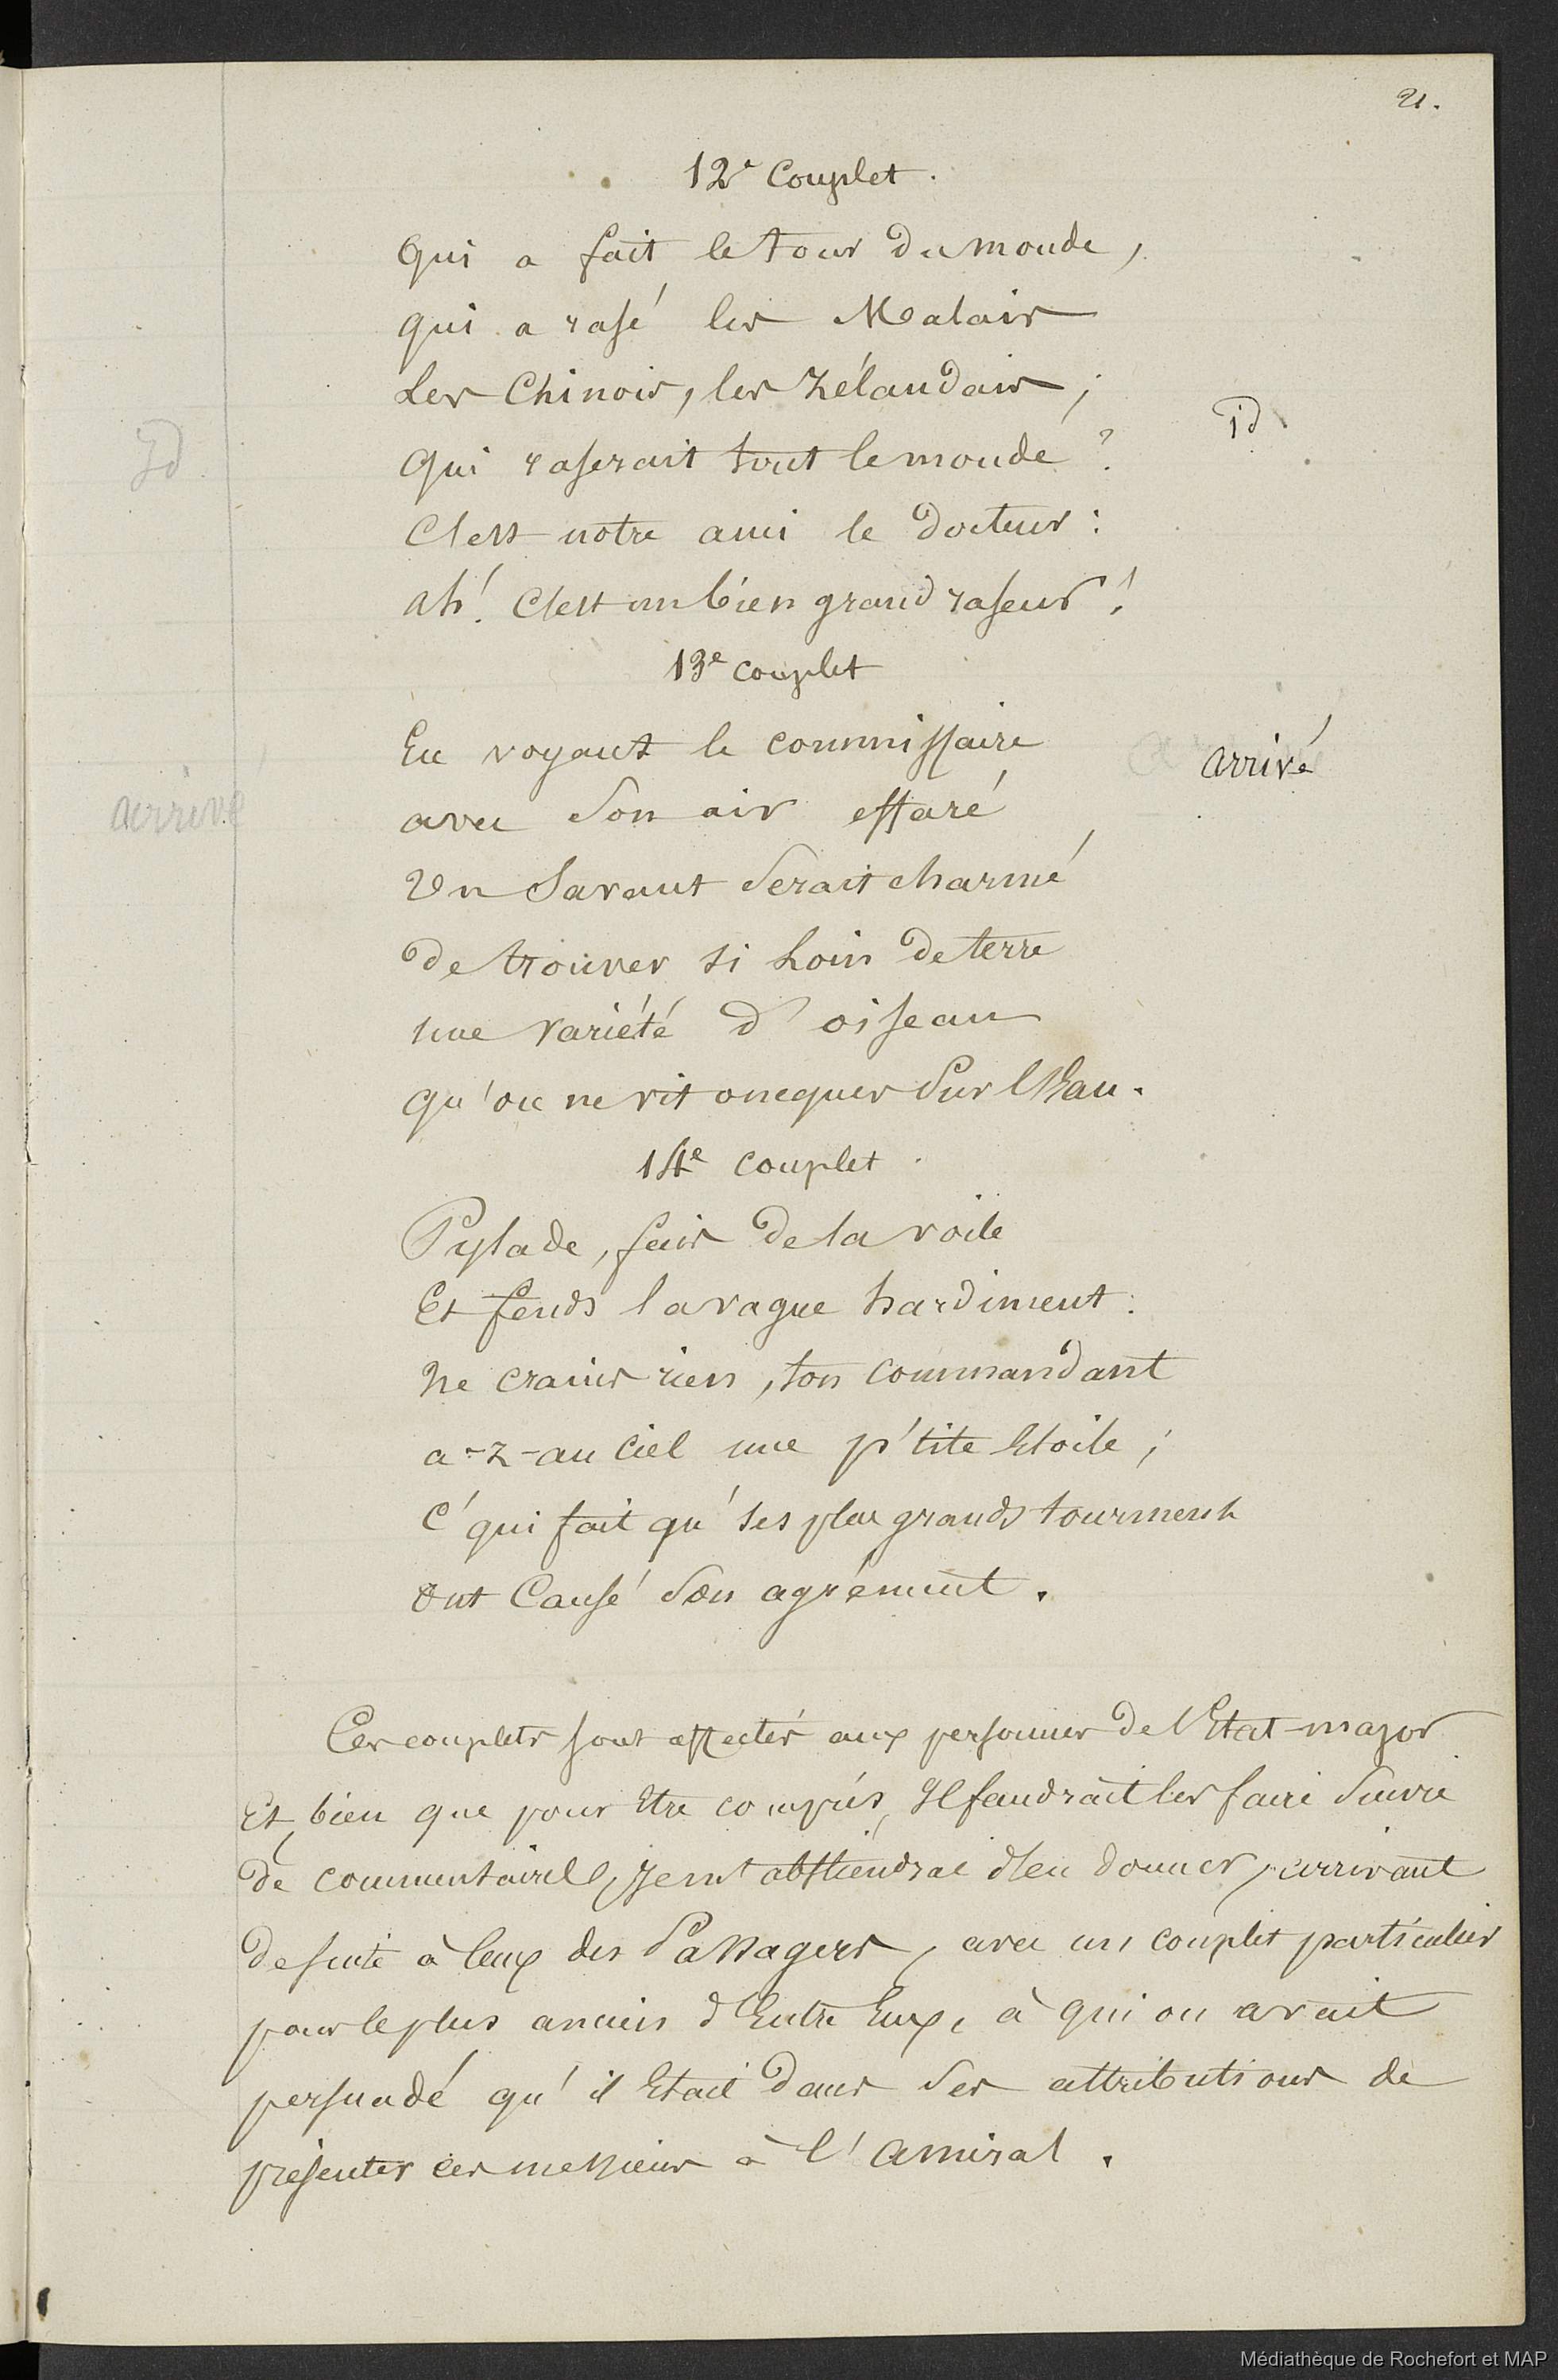 21.
12e Couplet.
Qui a fait le tour du monde,
qui a rasé les Malais
Les Chinois, les Zélandais ;
id
Id
Qui raserait tout le monde ?
C'est notre ami le Docteur :
ah ! C'est un bien grand raseur !
13e couplet
En voyant le commissaire
arrivé
arrivé
avec son air effaré,
Un Savant serait charmé
de trouver si loin de terre
une variété d'oiseau
qu'on ne vit oncques sur l'Eau.
14e couplet.
Pylade, fais de la voile
Et fends la vague hardiment :
Ne crains rien, ton commandant
a-z-au Ciel une p'tite Etoile ;
C' qui fait qu' ses plus grands tourments
Ont Causé son agrément.
Ces couplets sont affectés aux personnes de l'Etat-major
Et, bien que pour Etre compris, Il faudrait les faire suivre
de commentaires, je m'abstiendrai d'en donner, arrivant
de suite à Ceux des Passagers, avec un couplet particulier
pour le plus ancien d'Entre Eux, à qui on avait
persuadé qu'il Etait dans ses attributions de
présenter ces messieurs à l'Amiral.
Médiathèque de Rochefort et MAP